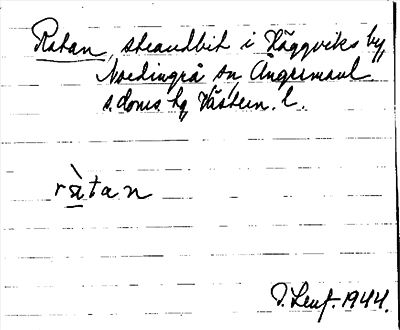 Ratan, strandbit i Häggviks by
Nordingrå sn Ångermanl.
s. doms. hg Västern. l.
ràtan
1944.